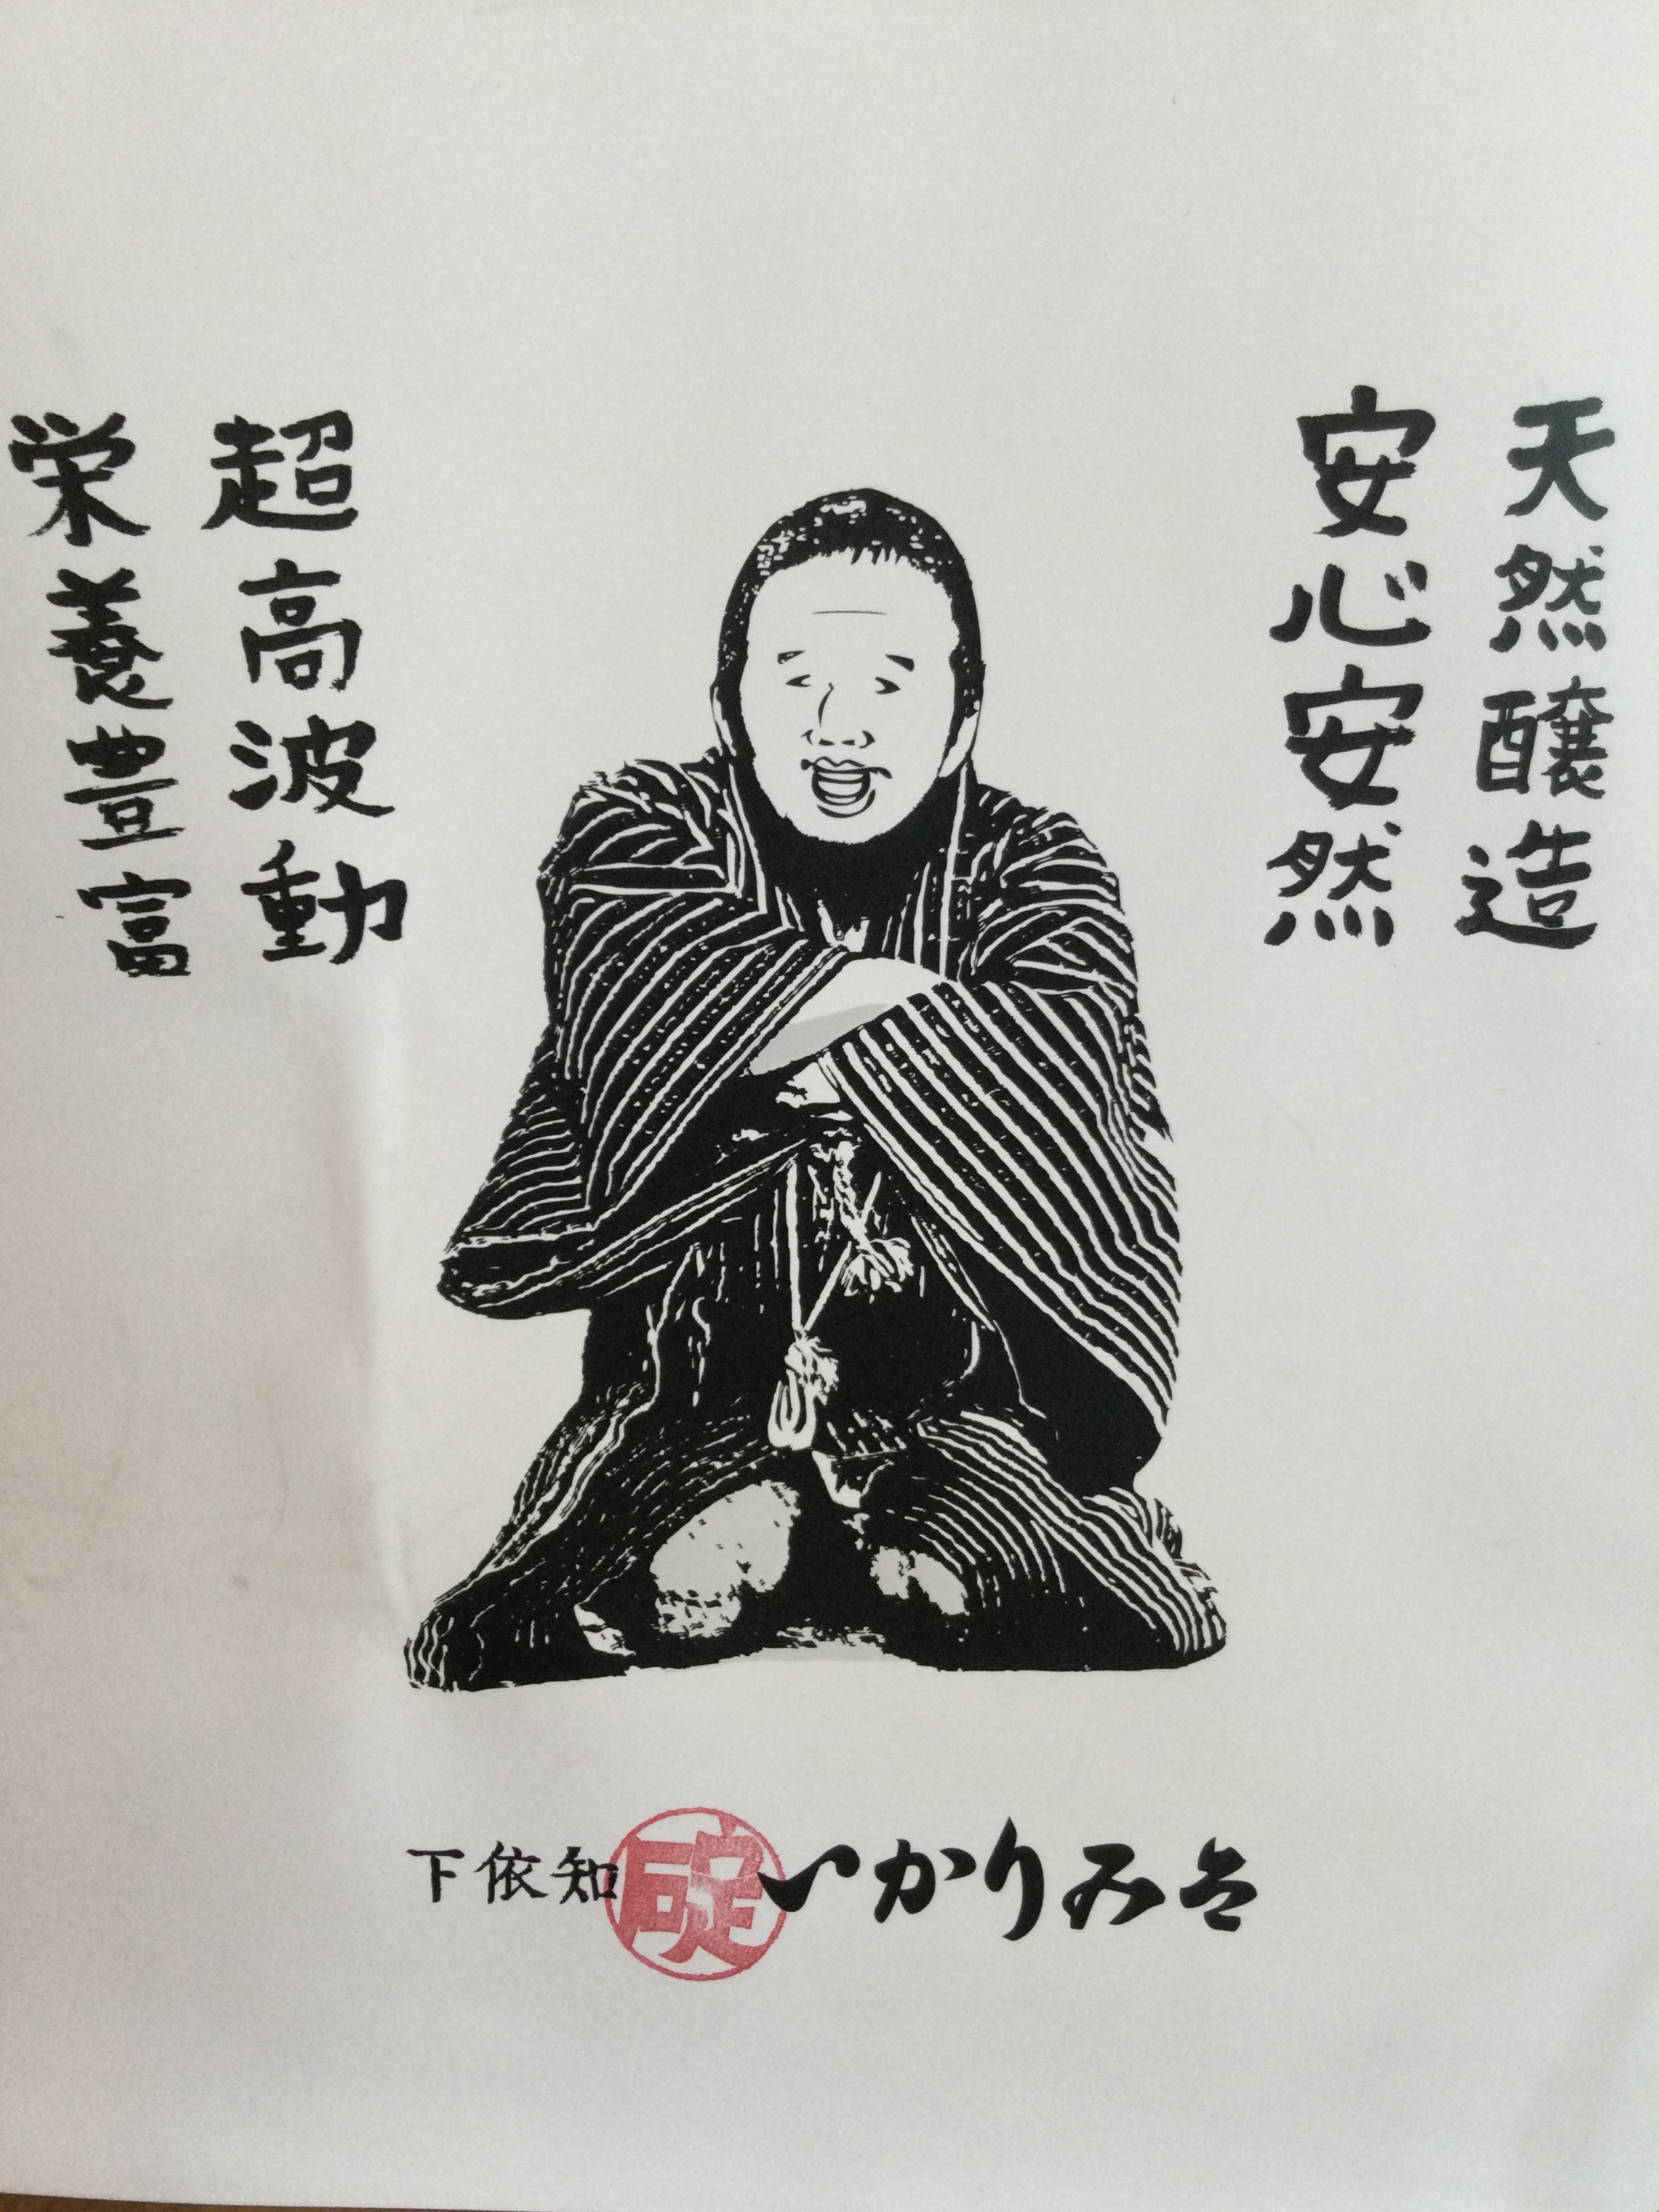 天然醸造
安心安然
超高波動
栄養豊富
下依知 碇 いかりみそ